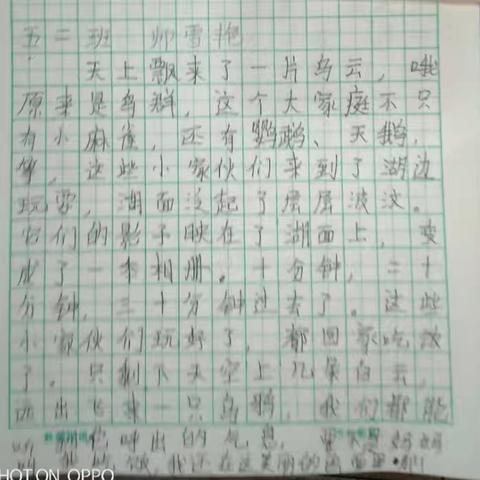 五二班 师雪艳
天上飘来了一片乌云，哦
原来是鸟群，这个大家庭不只
有小麻雀，还有鹦鹉、天鹅，
等，这些小家伙们来到了湖边
玩耍，湖面泛起了层层波纹。
它们的影子映在了湖面上，变
成了一本相册。十分钟，二十
分钟，三十分钟过去了。这些
小家伙们玩好了，都回家吃饭
了。只剩下天空上几朵白云，
远出飞来一只乌鸦，我们都能
呼出的气息，
我还在这美丽的
SHOT ON OPPO